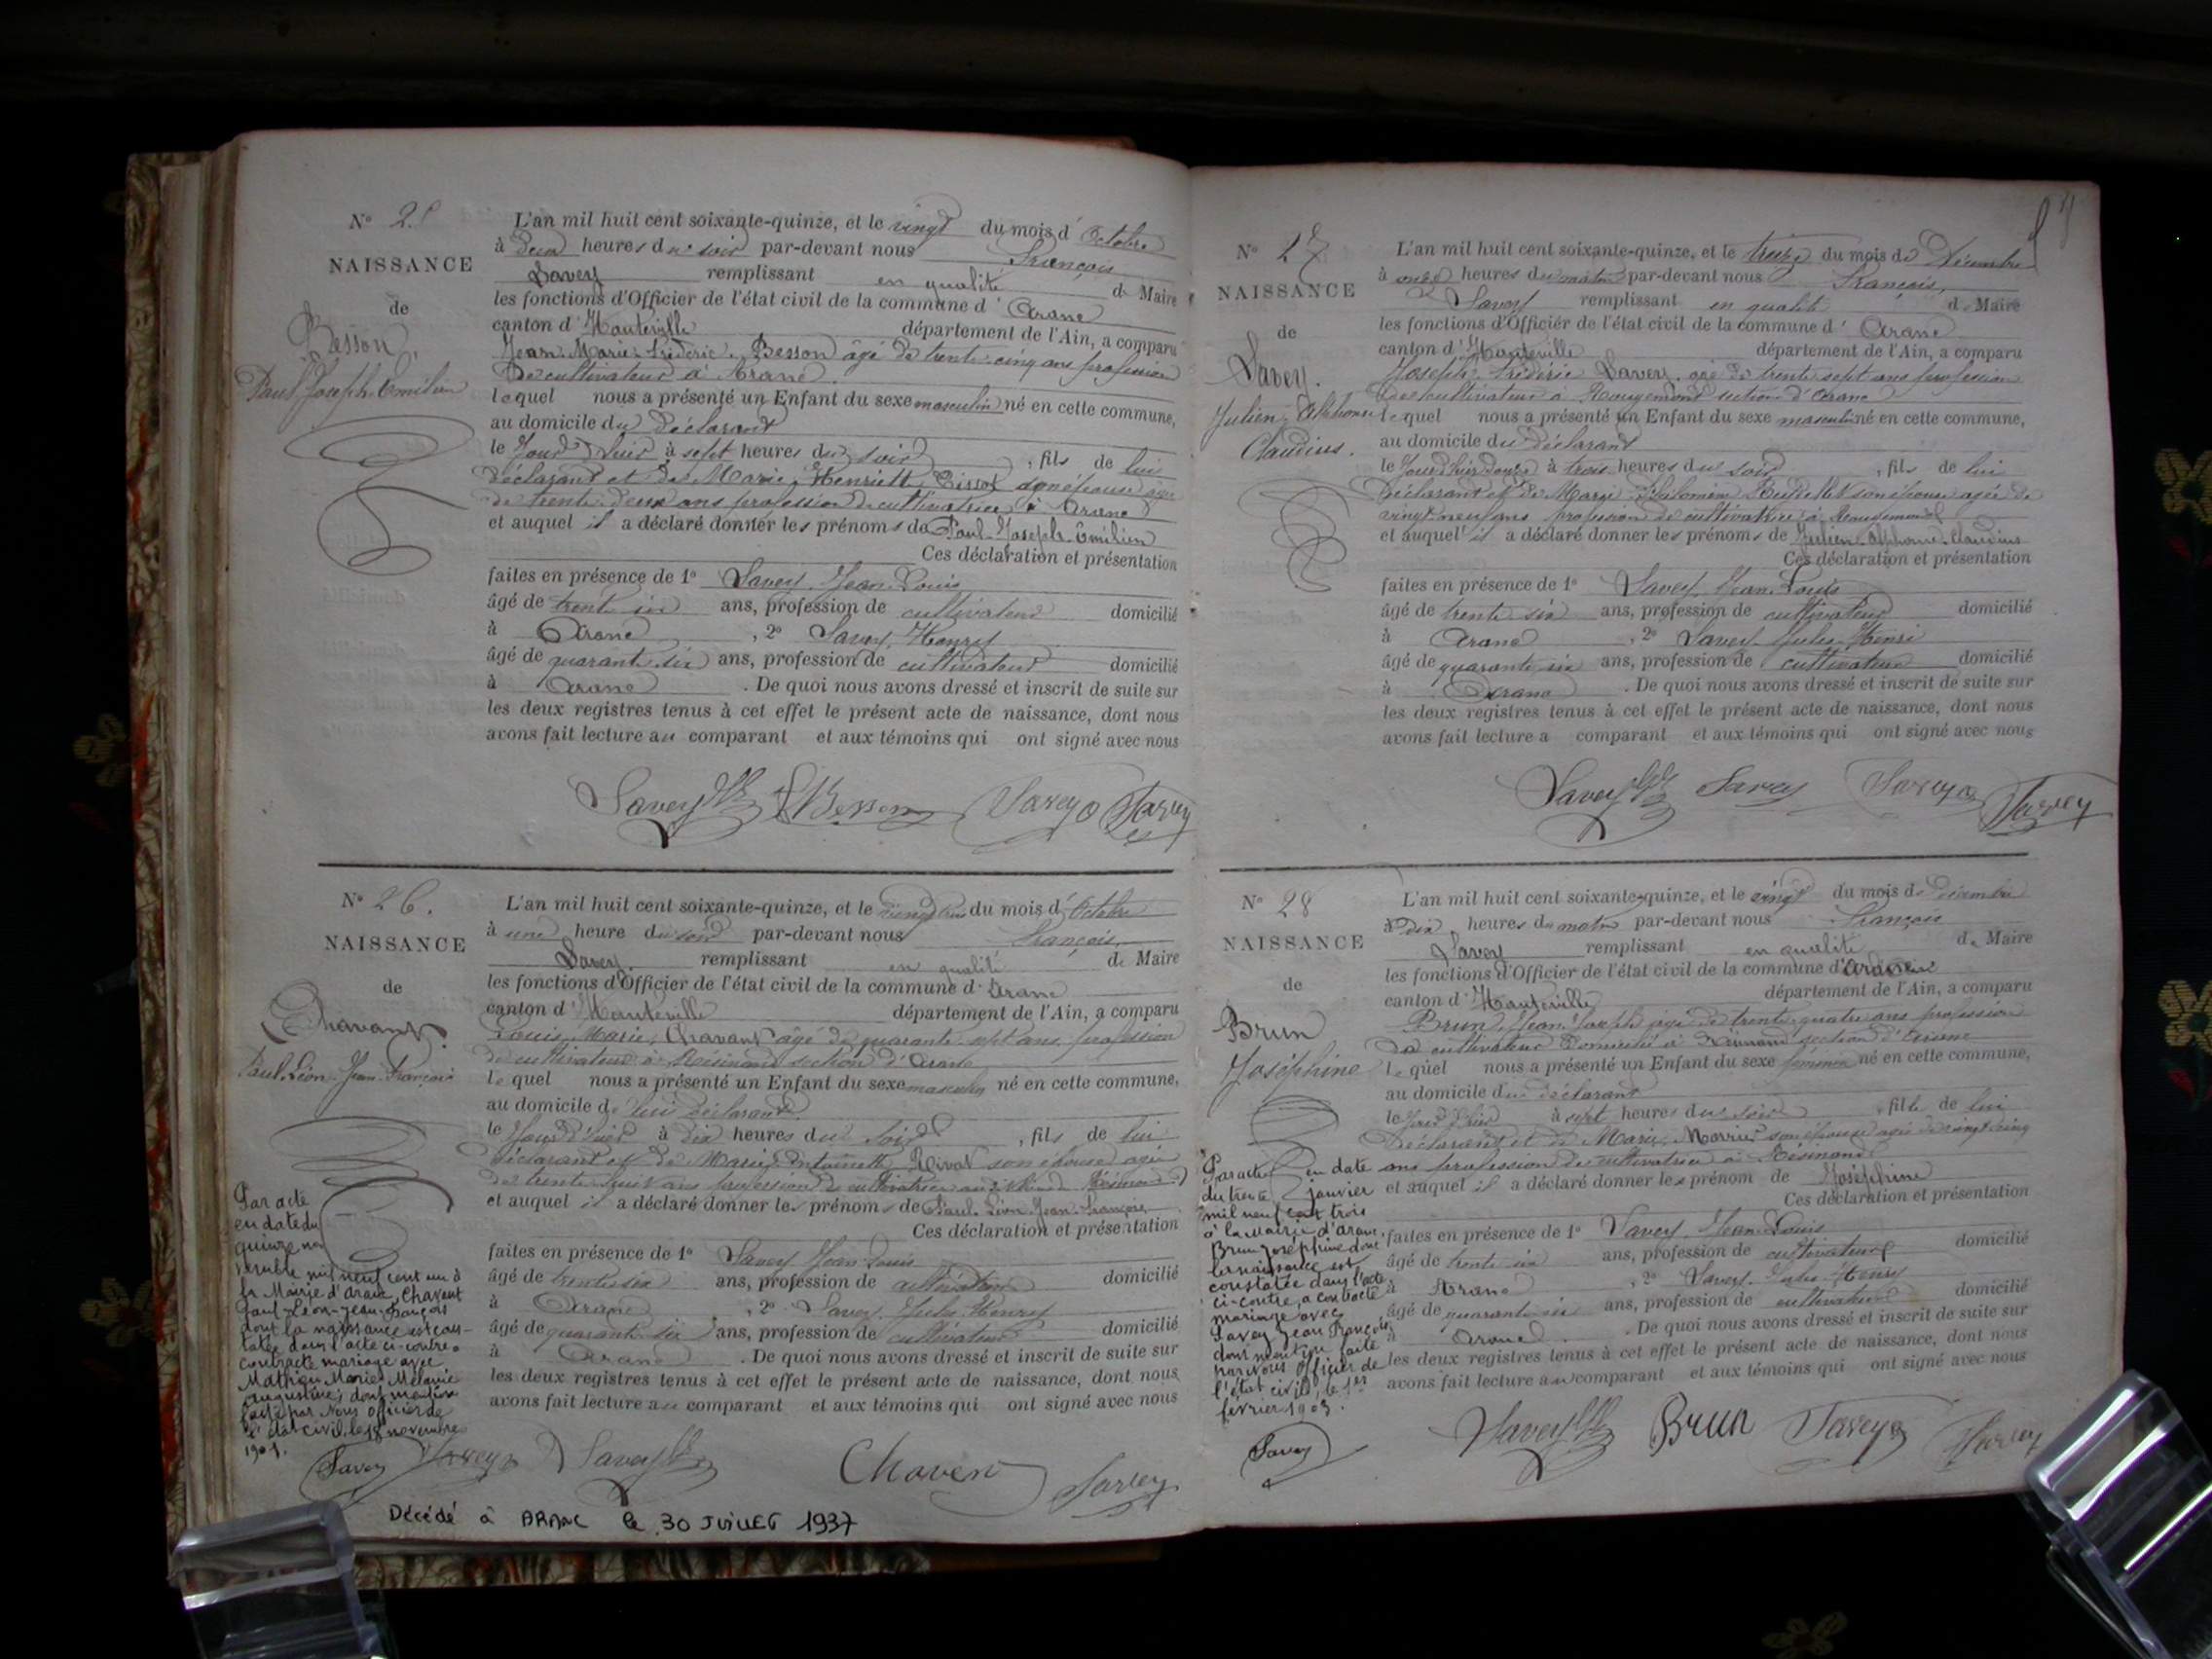 N° 2
NAISSANCE
de
Besson
Paul Joseph Emilien
L'an mil huit cent soixante-quinze, et le vingt du mois d'Octobre
à Deux heures du soir par-devant nous François
Savey remplissant en qualité de Maire
les fonctions d'Officier de l'état civil de la commune d'Aranc
canton d'Hauteville département de l'Ain, a comparu
Jean-Marie-Frédéric Besson âgé de trente-cinq ans profession
De cultivateur à Aranc
lequel nous a présenté un Enfant du sexe masculin né en cette commune,
au domicile du Déclarant
le Jour d'hier à sept heures du soir, fils de lui
déclarant et de Marie Henriette son épouse âgée
de trente-deux ans profession de cultivatrice à Aranc
et auquel il a déclaré donner les prénoms de Paul-Joseph-Emilien
Ces déclaration et présentation
faites en présence de 1° Savey Jean-Louis
âgé de trente six ans, profession de cultivateur domicilié
à Aranc, 2° Savey Henry
âgé de quarante six ans, profession de cultivateur domicilié
à Aranc. De quoi nous avons dressé et inscrit de suite sur
les deux registres tenus à cet effet le présent acte de naissance, dont nous
avons fait lecture au comparant et aux témoins qui ont signé avec nous
Savey Besson Savey Savey
N° 26.
NAISSANCE
de
Chavant
Paul-Léon-Jean-François
L'an mil huit cent soixante-quinze, et le du mois d'Octobre
à une heure du soir par-devant nous François
Savey remplissant en qualité de Maire
les fonctions d'Officier de l'état civil de la commune d'Aranc
canton d'Hauteville département de l'Ain, a comparu
Louis-Marie Chavant âgé de quarante sept ans profession
de cultivateur à Résinand section d'Aranc
lequel nous a présenté un Enfant du sexe masculin né en cette commune,
au domicile de lui Déclarant
le Jour d'hier à dix heures du soir, fils de lui
déclarant et de Marie Antoinette Rivat son épouse âgée
de trente-huit ans profession de cultivatrice Résinand
et auquel il a déclaré donner les prénoms de Paul-Léon-Jean-François
Ces déclaration et présentation
faites en présence de 1° Savey Jean Louis
âgé de trente six ans, profession de cultivateur domicilié
à Aranc, 2° Savey Jules Henry
âgé de quarante six ans, profession de cultivateur domicilié
à Aranc. De quoi nous avons dressé et inscrit de suite sur
les deux registres tenus à cet effet le présent acte de naissance, dont nous
avons fait lecture au comparant et aux témoins qui ont signé avec nous
Par acte
en date du
quinze no
vembre mil neuf cent un à
la Mairie d'Aranc, Chavent
Paul-Léon-Jean-François
dont la naissance est cons-
tatée dans l'acte ci-contre a
contracté mariage avec
Mathieu Marie Mélanie
Augustine; dont mention
faite par Nous officier de
l'état civil, le 18 novembre
1901.
Savey Savey Savey Chaven Savey
Décédé à ARANC le 30 JUILLET 1937
N° 27
NAISSANCE
de
Savey.
Julien Alphonse
Claudius.
L'an mil huit cent soixante-quinze, et le treize du mois de Décembre
à onze heures du matin par-devant nous François
Savey remplissant en qualité de Maire
les fonctions d'Officier de l'état civil de la commune d'Aranc
canton d'Hauteville département de l'Ain, a comparu
Joseph Frédéric Savey âgé de trente sept ans profession
de cultivateur à Rougemont section d'Aranc
lequel nous a présenté un Enfant du sexe masculin né en cette commune,
au domicile du Déclarant
le Jour d'hier douze à trois heures du soir, fils de lui
Déclarant et de Marie son épouse âgée de
vingt neuf ans profession de cultivatrice à Rougemont
et auquel il a déclaré donner les prénoms de Julien-Alphonse-Claudius
Ces déclaration et présentation
faites en présence de 1° Savey Jean-Louis
âgé de trente six ans, profession de cultivateur domicilié
à Aranc, 2° Savey Jules Henri
âgé de quarante six ans, profession de cultivateur domicilié
à Aranc. De quoi nous avons dressé et inscrit de suite sur
les deux registres tenus à cet effet le présent acte de naissance, dont nous
avons fait lecture a comparant et aux témoins qui ont signé avec nous
Savey Savey Savey Savey
N° 28
NAISSANCE
de
Brun
Joséphine
L'an mil huit cent soixante-quinze, et le vingt du mois de Décembre
à dix heures du matin par-devant nous François
Savey remplissant en qualité de Maire
les fonctions d'Officier de l'état civil de la commune d'Aranc
canton d'Hauteville département de l'Ain, a comparu
Brun Jean Joseph âgé de trente quatre ans profession
de cultivateur domicilié à Résinand section d'Aranc
lequel nous a présenté un Enfant du sexe féminin né en cette commune,
au domicile du déclarant
le Jour d'hier à sept heures du soir, fille de lui
Déclarant et de Marie son épouse âgée de vingt cinq
ans profession de cultivatrice à Résinand
et auquel il a déclaré donner les prénom de Joséphine
Ces déclaration et présentation
faites en présence de 1° Savey Jean-Louis
âgé de trente six ans, profession de cultivateur domicilié
à Aranc, 2° Savey Jules Henry
âgé de quarante six ans, profession de cultivateur domicilié
à Aranc. De quoi nous avons dressé et inscrit de suite sur
les deux registres tenus à cet effet le présent acte de naissance, dont nous
avons fait lecture au comparant et aux témoins qui ont signé avec nous
Par acte en date
du trente janvier
mil neuf cent trois
à la mairie d'Aranc,
Brun Joséphine dont
la naissance est
constatée dans l'acte
ci-contre, a contracté
mariage avec
Savey Jean François
dont mention faite
par nous officier de
l'état civil, le 1er
février 1903.
Savey
Savey Brun Savey Savey